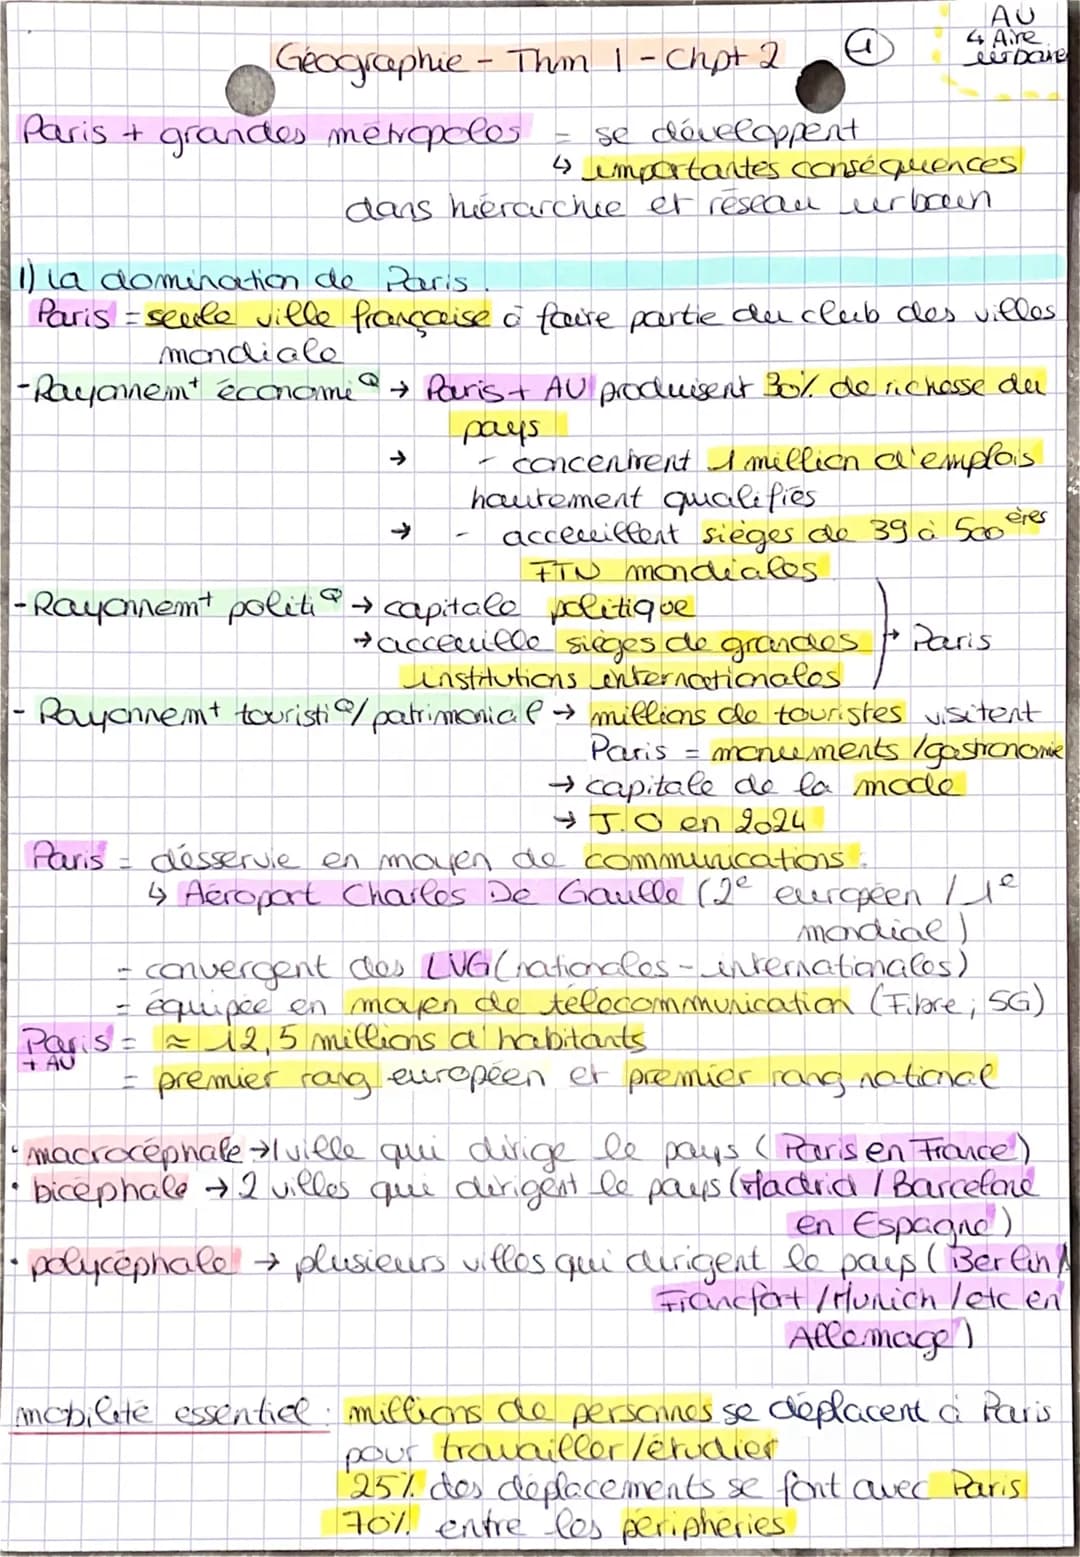 AU
↳ Aire
urbaine
Géographie - Thm 1 - Chpt 2
1
Paris + grandes métropoles = se développent
↳ importantes conséquences
dans hiérarchie et réseau urbain
1) La domination de Paris.
Paris = seule ville française à faire partie du club des villes
mondiale
- Rayonnemt économiQ → Paris + AU produisent 30% de richesse du
pays
→ - concentrent 1 million d'emplois
hautement qualifiés
→ - acceuillent sièges de 39 à 500 ères
FTN mondiales
- Rayonnemt politiQ → capitale politique
→ acceuille sièges de grandes → Paris
institutions internationales
- Rayonnemt touristiQ / patrimonial → millions de touristes visitent
Paris = monuments / gastronomie
→ capitale de la mode
→ J.O en 2024
Paris = désservie en moyen de communications :
↳ Aéroport Charles De Gaulle (2e européen / 1e
mondial)
= convergent des LVG (nationales - internationales)
= équipée en moyen de télécommunication (Fibre ; 5G)
Paris = ≈ 12,5 millions d'habitants
+ AU
= premier rang européen et premier rang national
• macrocéphale → 1 ville qui dirige le pays (Paris en France)
• bicéphale → 2 villes qui dirigent le pays (Madrid / Barcelone
en Espagne)
• polycéphale → plusieurs villes qui dirigent le pays (Berlin /
Francfort / Munich / etc en
Allemage)
mobilité essentiel : millions de personnes se déplacent à Paris
pour travailler / étudier
25% des déplacements se font avec Paris
70% entre les périphéries